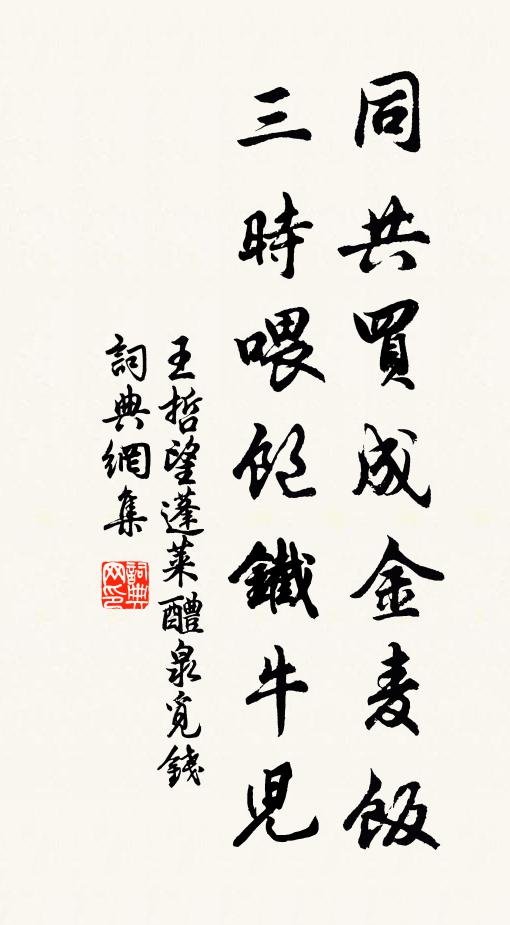 同共買成金麦飯
三時喂飽鐵牛兒
王哲望蓬萊醴泉覓錢
詞典網集
詞典网印